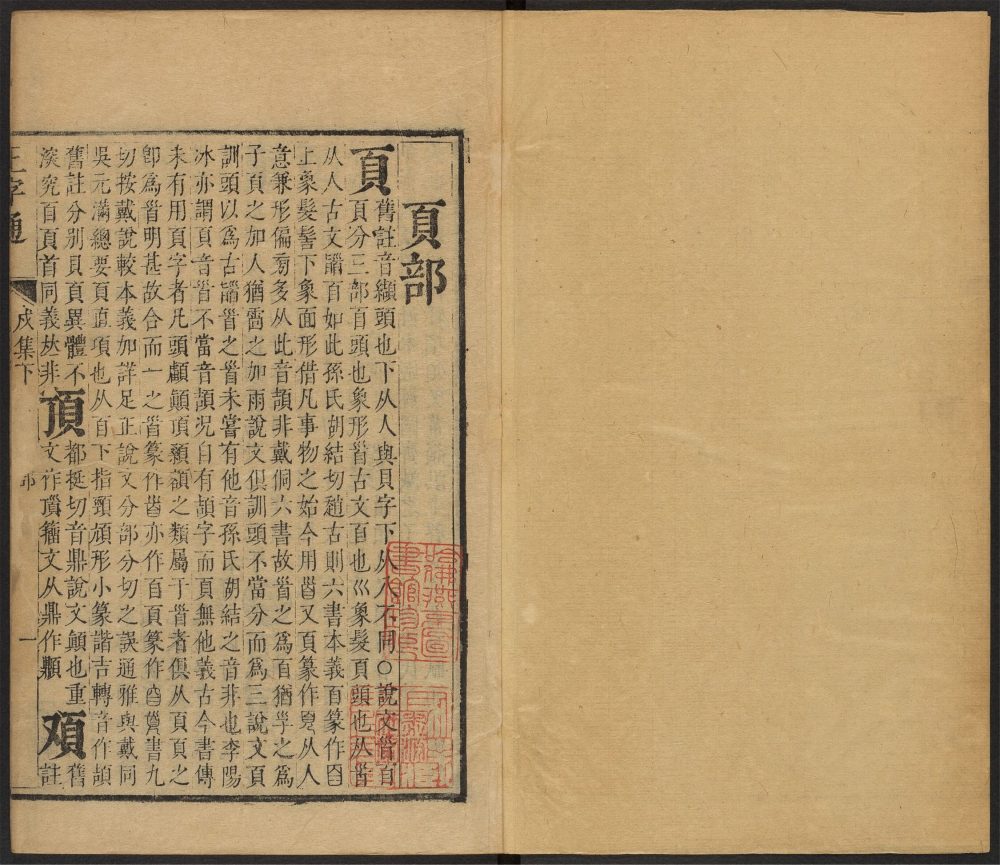 頁部
頁舊註音纈頭也下从人與貝字下从八不同○說文𩠐百
頁分三部百頭也象形𩠐古文百也巛象髮頁頭也从𩠐
从人古文䭫百如此孫氏胡結切𨖚古則六書本義百篆作𦣻
上象髮髻下象面形借凡事物之始今用𩠐又頁篆作𩑋从人
意兼形偏㫄多从此音頡非戴侗六書故𩠐之爲百猶𡴀之爲
子頁之加人猶䨮之加雨說文俱訓頭不當分而爲三說文頁
訓頭以爲古䭫𩠐之𩠐未嘗有他音孫氏胡結之音非也李陽
冰亦謂頁音𩠐不當音頡況自有頡字而頁無他義古今書傳
未有用頁字者凡頭顱顚頂顙頟之類屬于𩠐者俱从頁頁之
卽爲𩠐明甚故合而一之𩠐篆作𩠐亦作百頁篆作
切按戴說較本義加詳足正說文分部分切之誤通雅與戴同
吳元滿總要頁直項也从百下指頸頎形小篆諧吉轉音作頡
舊註分別貝頁異體不
深究百頁首同義𠀤非頂都挺切音鼎說文顚也重
文作頂籒文从鼎作顠𩑒舊
註
正字通
戌集下
部
一